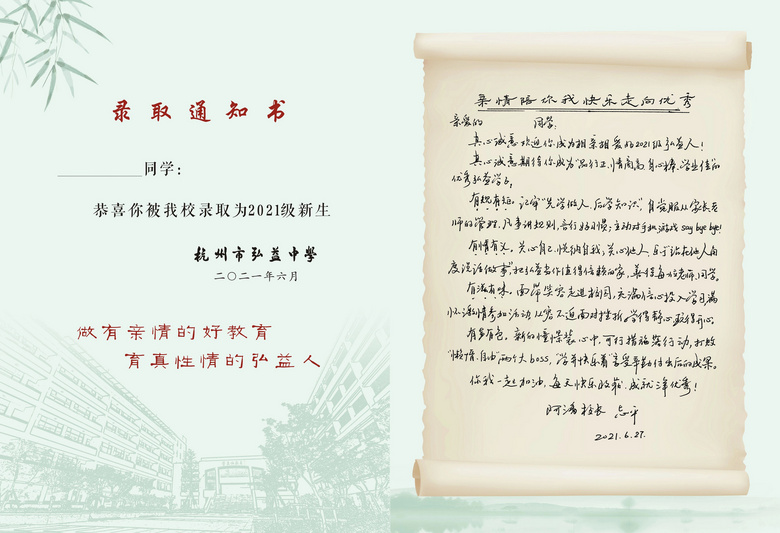 录取通知书
同学:
恭喜你被我校录取为2021级新生
杭州市弘益中學
二〇二一年六月
做有亲情的好教育
育真性情的弘益人
亲情陪你我快乐走向优秀
亲爱的 同学:
真心诚意欢迎你成为相亲相爱的2021级弘益人!
真心诚意期待你成为"品行正、情商高、身心棒、学业佳"的
优秀弘益学子。
有规有矩。记牢"先学做人,后学知识",自觉服从家长老
师的管理,凡事讲规则,言行好习惯;主动对手机游戏say bye bye!
有情有义。关心自己,悦纳自我,关心他人,乐于"站在他人角
度说话做事",把弘益当作值得信赖的家,善待每位老师、同学。
有滋有味。面带笑容走进校园,充满信心投入学习,满
怀激情参加活动,从容不迫面对挫折,学得静心,玩得开心。
有声有色。新的憧憬装心中,可行措施落行动,打败
"懒惰、自由"两个大boss,"学并快乐着"享受辛勤付出后的成果。
你我一起加油,每天快乐收获,成就淬优秀!
阿潘校长
2021.6.27.